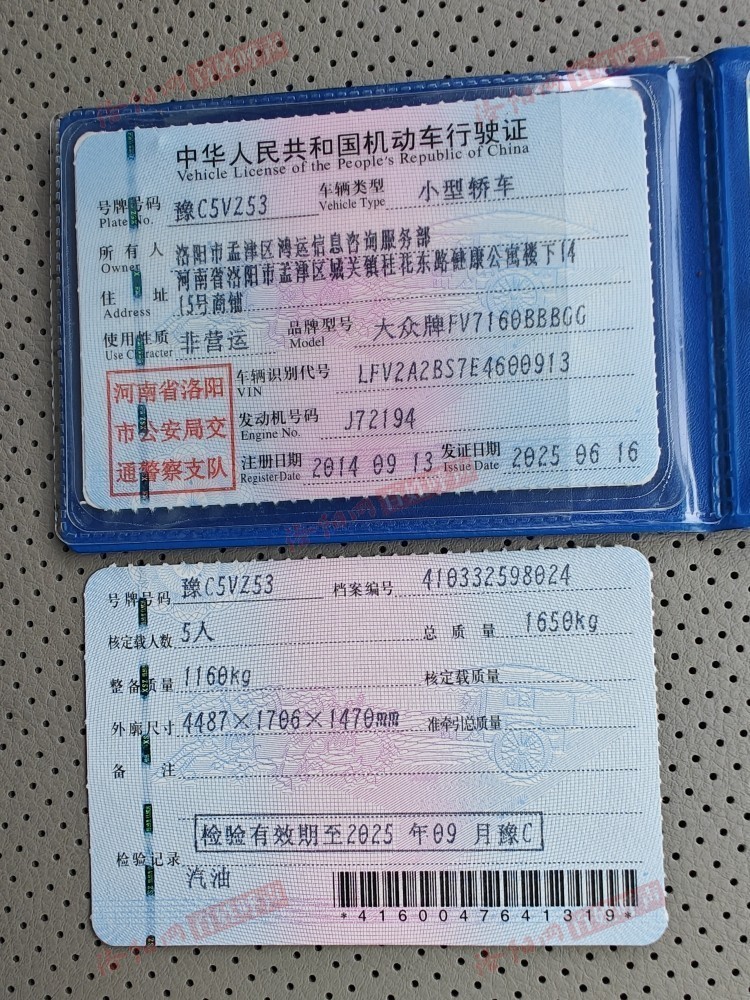 中华人民共和国机动车行驶证
Vehicle License of the People's Republic of China
号牌号码 豫C5VZ53 车辆类型 小型轿车
Plate No. Vehicle Type
所有人 洛阳市孟津区鸿运信息咨询服务部
Owner
住址 河南省洛阳市孟津区城关镇桂花东路健康公寓楼下14
Address 15号商铺
使用性质 非营运 品牌型号 大众牌FV7160BBBGG
Use Character Model
河南省洛阳
市公安局交
通警察支队
车辆识别代号 LFV2A2BS7E4600913
VIN
发动机号码 J72194
Engine No.
注册日期 2014 09 13 发证日期 2025 06 16
Register Date Issue Date
号牌号码 豫C5VZ53 档案编号 410332598024
核定载人数 5人 总质量 1650kg
整备质量 1160kg 核定载质量
外廓尺寸 4487×1706×1470mm 准牵引总质量
备注
检验有效期至2025 年09 月豫C
检验记录
汽油
*4160047641319*